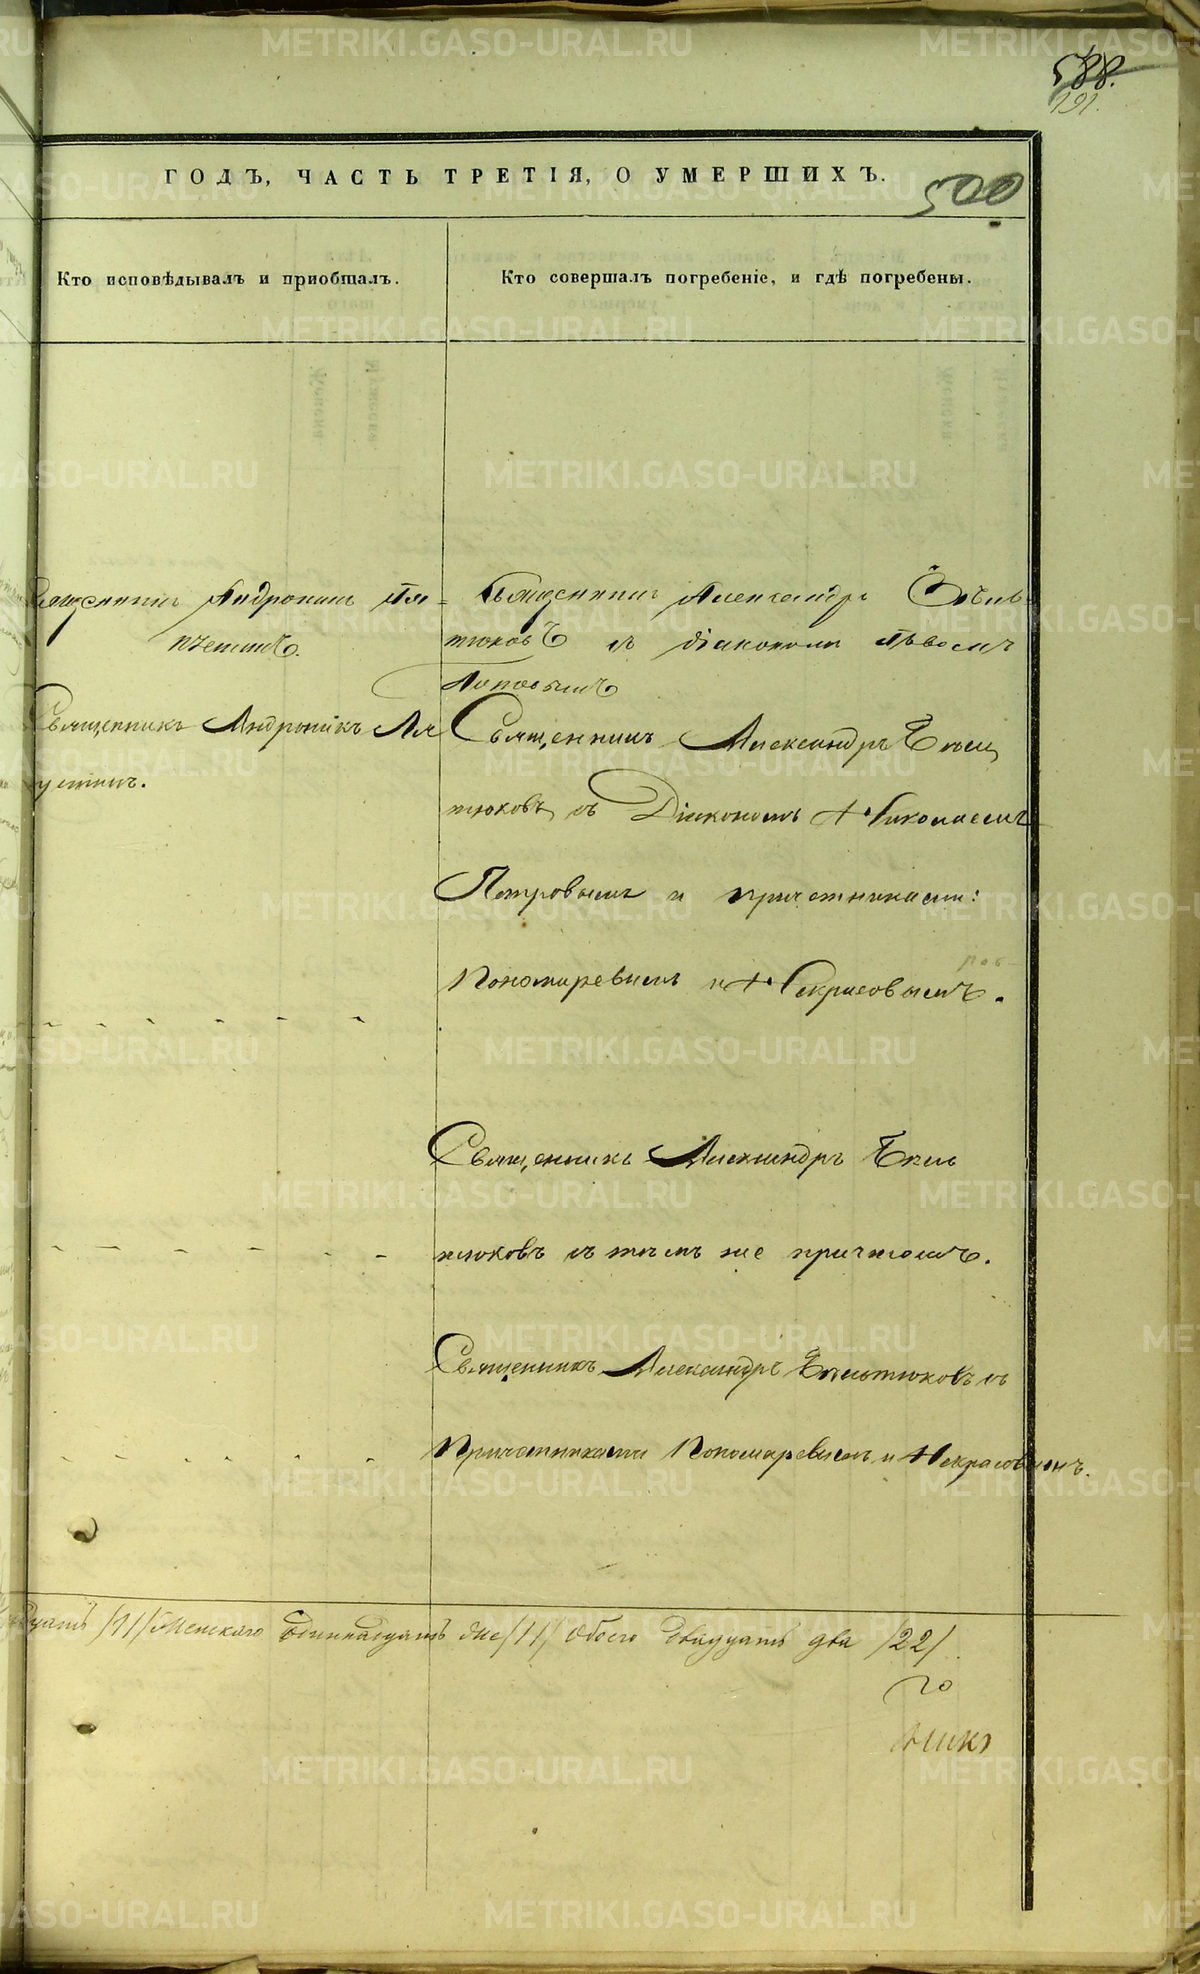 588.
191.
ГОДЪ, ЧАСТЬ ТРЕТІЯ, О УМЕРШИХЪ.
500
Кто исповѣдывалъ и пріобщалъ.
Кто совершалъ погребеніе, и гдѣ погребены.
Священникъ Андроникъ
Священникъ Александръ Бѣль
тюковъ съ діакономъ Львомъ
Поповымъ
Священникъ Андроникъ Ля
пустинъ.
Священникъ Александръ Бѣль
тюковъ, съ Діакономъ Николаемъ
Петровымъ и причетниками:
Пономаревымъ и Некрасовымъ.
Священникъ Александръ Бѣль
тюковъ съ тѣмъ же причтомъ.
Священникъ Александръ Бѣльтюковъ съ
Причетниками Пономаревымъ и Некрасовымъ.
/11/ Женскаго одиннадцать же /11/ Обоего двадцать два /22/
METRIKI.GASO-URAL.RU